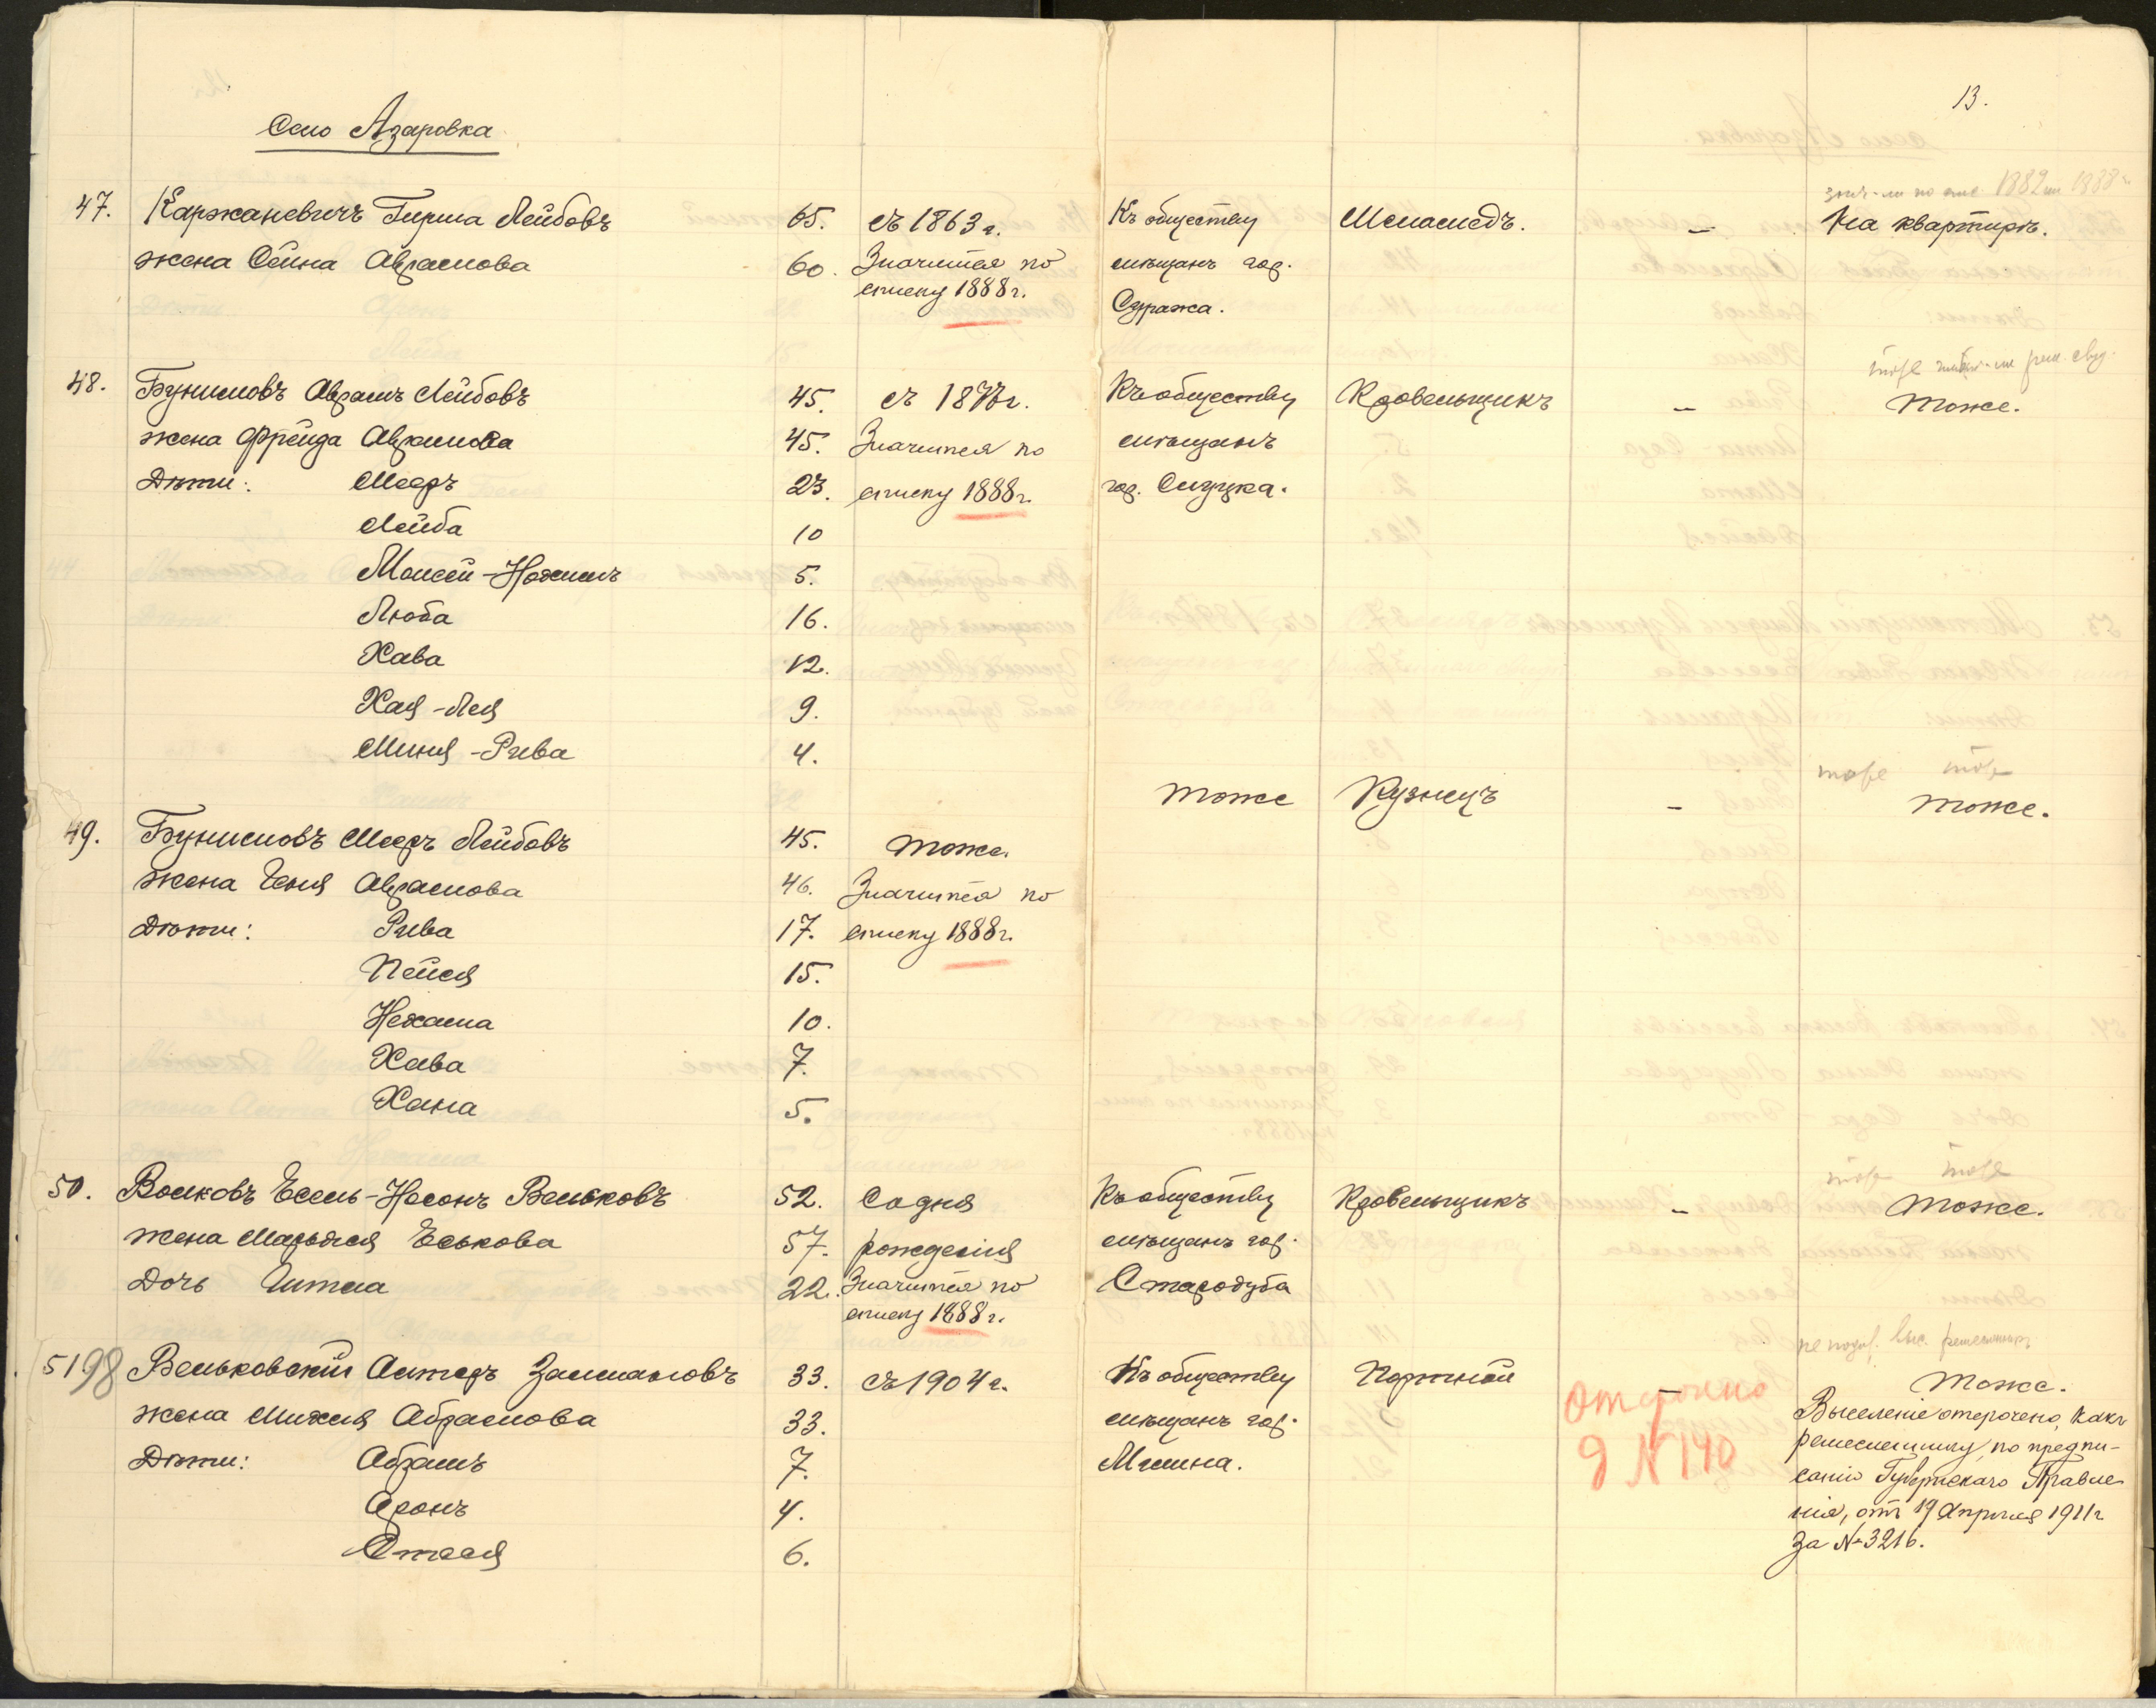 13.
Село Азаровка
47. Каржаневичъ Гирша Лейбовъ 65. съ 1863 г. Къ обществу Меламедъ. – На квартирѣ.
жена Сейна Авраамова 60. Значится по мѣщанъ гор.
списку 1888 г. Суража.
тоже
48. Бунимовъ Аврамъ Лейбовъ 45. съ г. Къ обществу Кровельщикъ – Тоже.
жена Фрейда Аврамова 45. Значится по мѣщанъ
Дѣти: Мееръ 23. списку 1888 г. гор. Слуцка.
Лейба 10
Моисей-Нохимъ 5.
Люба 16.
Хава 12.
Хая-Лея 9.
Миня-Рива 4.
тоже тоже
Тоже Кузнецъ – Тоже.
49. Бунимовъ Мееръ Лейбовъ 45. Тоже.
жена Геня Аврамова 46. Значится по
Дѣти: Рива 17. списку 1888 г.
Пейся 15.
Нехама 10.
Хава 7.
Хана 5.
тоже тоже
50. Волковъ Есель-Носонъ Вельковъ 52. Со дня Къ обществу Кровельщикъ – Тоже.
жена Марьяся Еськова 57. рожденія мѣщанъ гор.
Дочь Гитла 22. Значится по Стародуба
списку 1888 г.
51 98 Вельковскій Алтеръ Залмановъ 33. съ 1904 г. Къ обществу Портной – Тоже.
жена Михля Абрамова 33. мѣщанъ гор. Выселеніе отсрочено, какъ
Дѣти: Абрамъ 7. Мглина. ремесленнику, по предпи-
Аронъ 4. санію Губернскаго Правле-
Стася 6. нія, отъ 19 Апрѣля 1911 г
за № 3216.
Отсрочено
д N 140